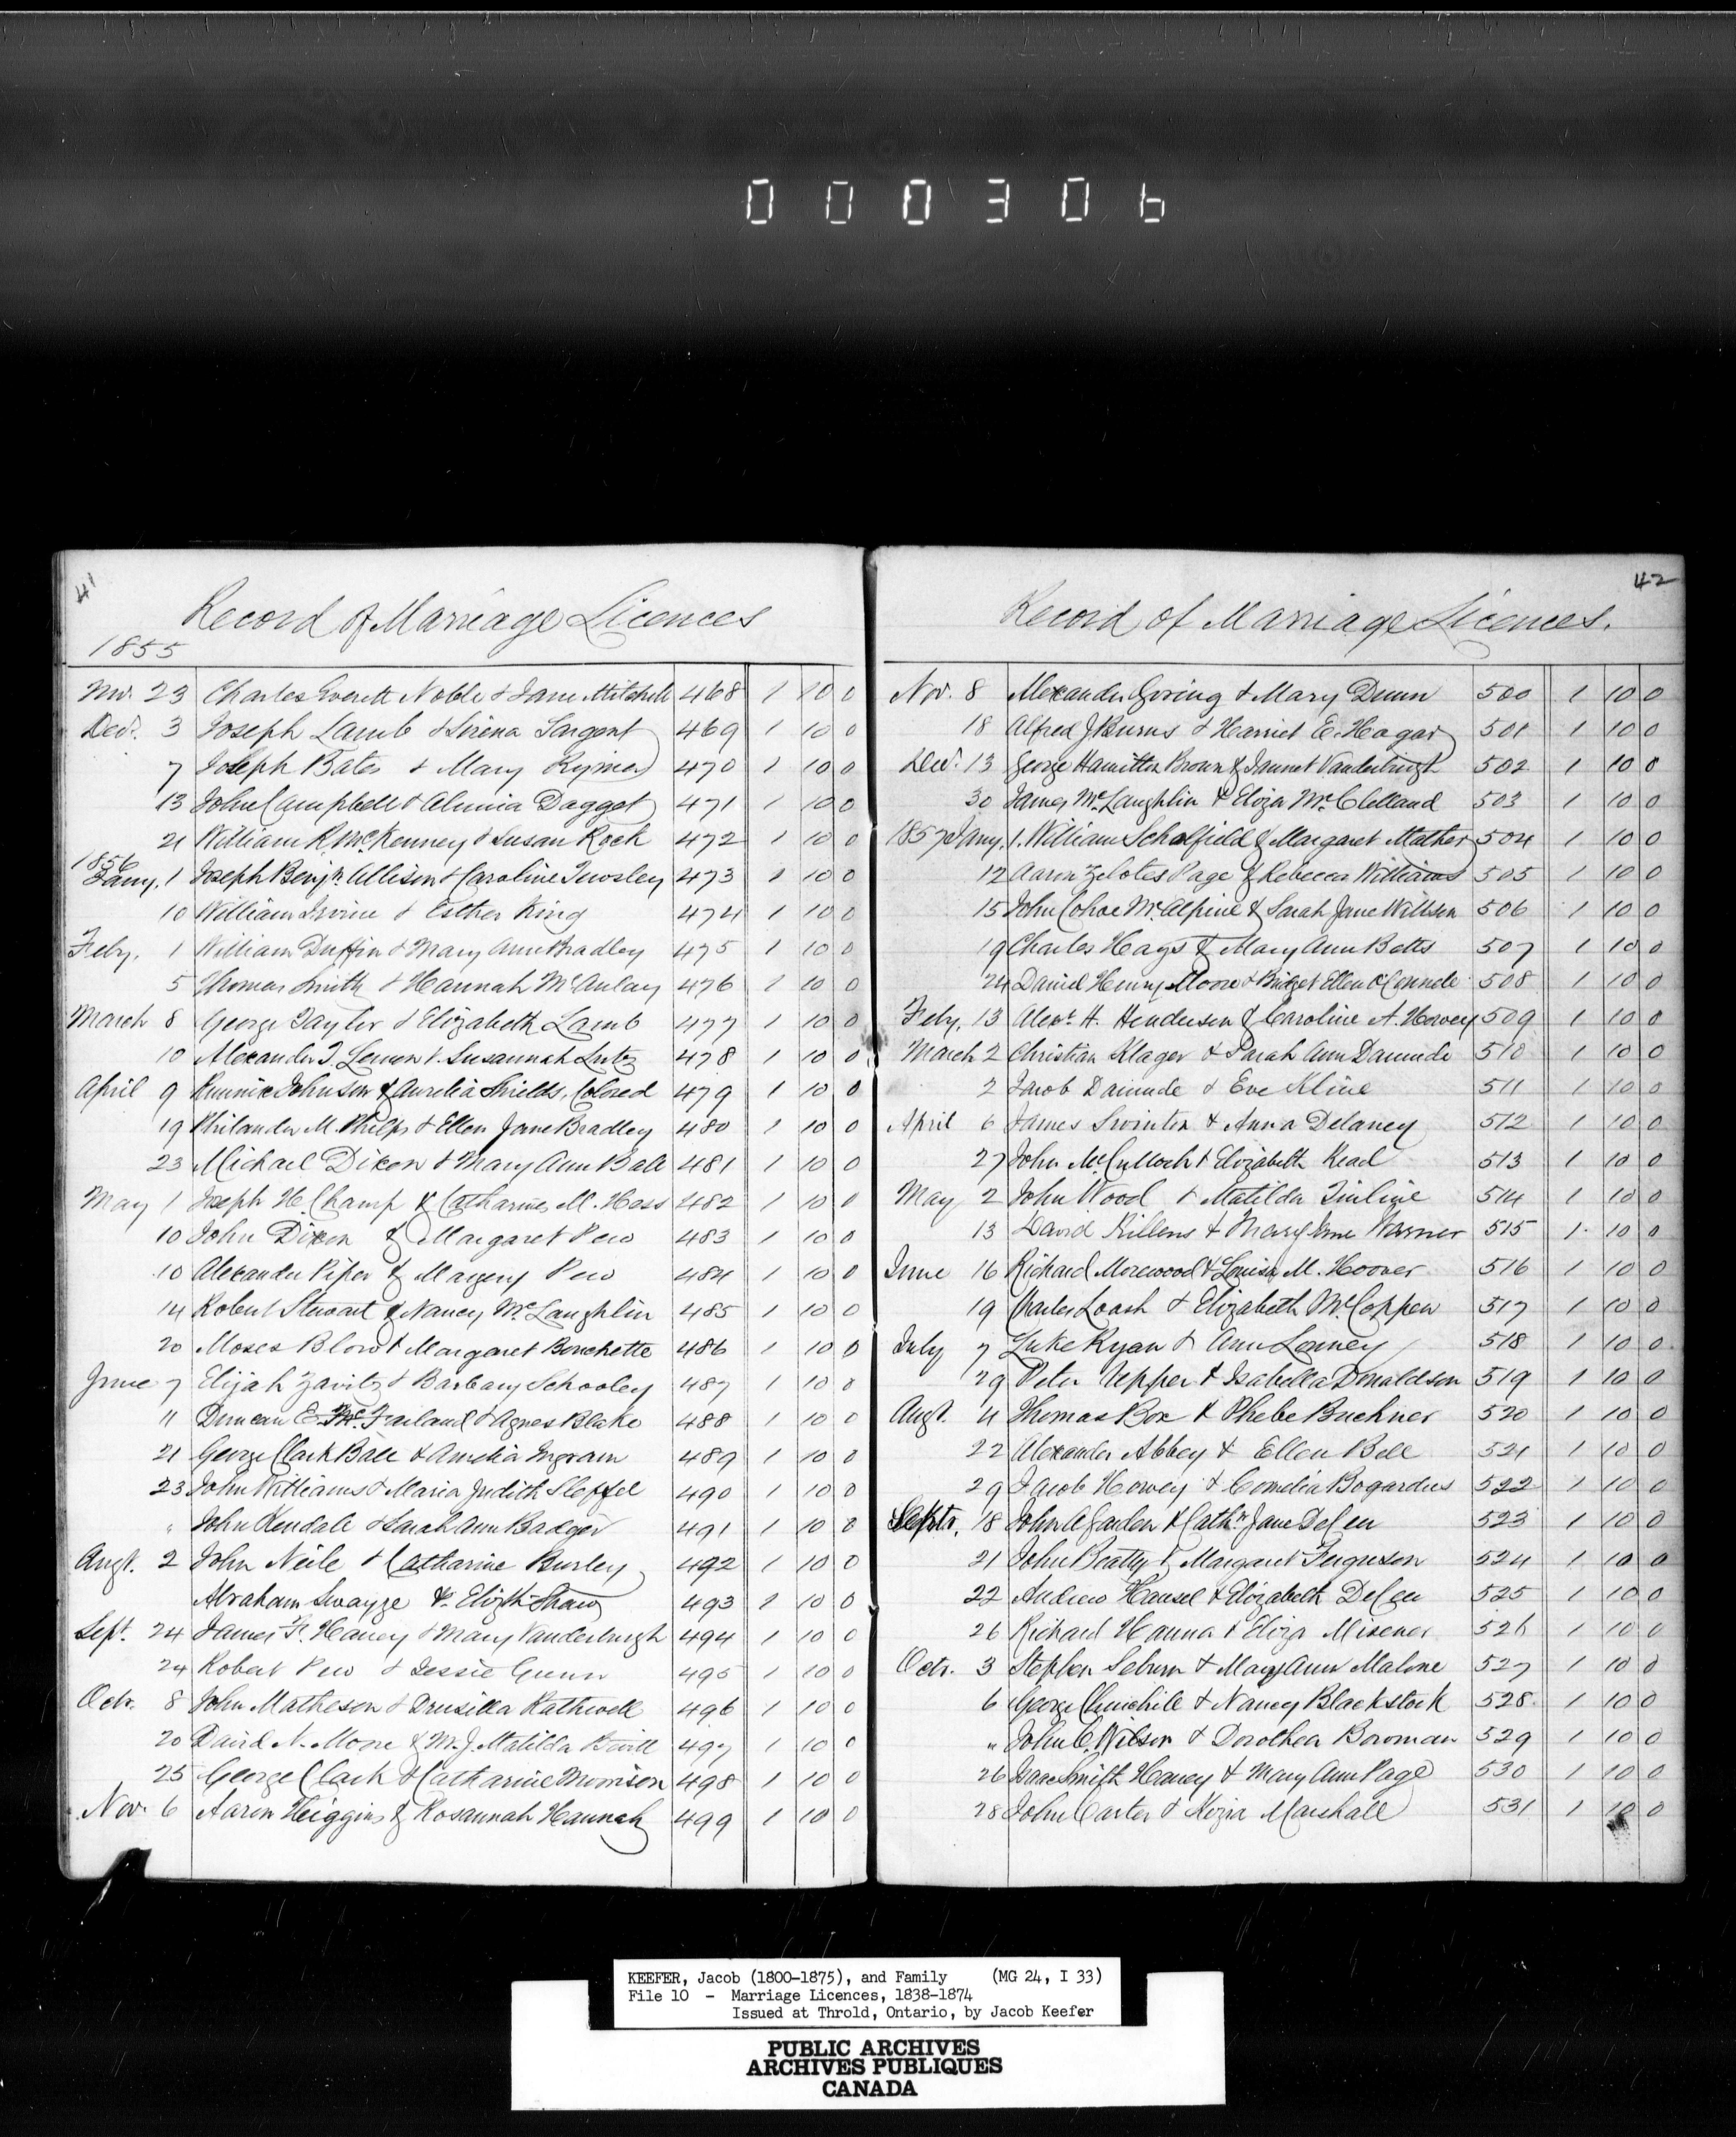 000306
41
Record of Marriage Licences
1855
Nov. 23 Charles Everett Noble & Jane Mitchell 468 1 10 0
Decr. 3 Joseph Lamb & Sirena Sargent 469 1 10 0
7 Joseph Bates & Mary Rymer 470 1 10 0
13 John Campbell & Almina Dagget 471 1 10 0
21 William R. McKenney & Susan Rock 472 1 10 0
1856
Jany. 1 Joseph Benjn. Allison & Caroline 473 1 10 0
10 William Irvine & Esther King 474 1 10 0
Feby. 1 William Duffin & Mary Ann Bradley 475 1 10 0
5 Thomas Smith & Hannah McAulay 476 1 10 0
March 8 George Taylor & Elizabeth Lamb 477 1 10 0
10 Alexander T. Lemon & Susannah Lutz 478 1 10 0
April 9 Johnson & Aurelia Shields, Colored 479 1 10 0
19 Philander M. Phelps & Ellen Jane Bradley 480 1 10 0
23 Michael Dixon & Mary Ann Ball 481 1 10 0
May 1 Joseph H. Champ & Catharine M. Hass 482 1 10 0
10 John Dixon & Margaret Pew 483 1 10 0
10 Alexander Piper & Margery Pew 484 1 10 0
14 Robert Stewart & Nancy McLaughlin 485 1 10 0
20 Moses Blow & Margaret Bouchette 486 1 10 0
June 7 Elijah Zavitz & Barbary Schooley 487 1 10 0
11 Duncan E. Mc. Farland & Agnes Blake 488 1 10 0
21 George Clark Ball & Amelia Ingram 489 1 10 0
23 John Williams & Maria Judith Sleffel 490 1 10 0
" John Kendall & Sarah Ann Badger 491 1 10 0
Augt. 2 John Neile & Catharine Burley 492 1 10 0
Abraham Swayze & Elizth Shaw 493 1 10 0
Sept. 24 James F. Haney & Mary Vanderburgh 494 1 10 0
24 Robert Pew & Jessie Gunn 495 1 10 0
Octr. 8 John Matheson & Drusilla Rathwell 496 1 10 0
20 David N. Moore & M. J. Matilda 497 1 10 0
25 George Clark & Catharine Morrison 498 1 10 0
Nov. 6 Aaron Higgins & Rosannah Hannah 499 1 10 0
42
Record of Marriage Licences.
Nov. 8 Alexander Goring & Mary Dunn 500 1 10 0
18 Alfred J. Burns & Harriet E. Hagar 501 1 10 0
Decr. 13 George Hamilton Brown & Jannet Vanderburgh 502 1 10 0
30 James McLaughlin & Eliza McClelland 503 1 10 0
1857 Jany. 1. William Scholfield & Margaret Mather 504 1 10 0
12 Aaron Zelotes Page & Rebecca Williams 505 1 10 0
15 John Cohoe McAlpine & Sarah Jane Willson 506 1 10 0
19 Charles Hags & Mary Ann Betts 507 1 10 0
24 Daniel Henry Moore & Bridget Ellen O'Connole 508 1 10 0
Feby. 13 Alexr. H. Henderson & Caroline A. Howey 509 1 10 0
March 2 Christian Klager & Sarah Ann Damude 510 1 10 0
2 Jacob Damude & Eve Kline 511 1 10 0
April 6 James Swinton & Anna Delaney 512 1 10 0
27 John McCulloch & Elizabeth Read 513 1 10 0
May 2 John Wood & Matilda Tinline 514 1 10 0
13 David Killens & Mary Jane Warner 515 1 10 0
June 16 Richard Morewood & Louisa M. Hoover 516 1 10 0
19 Charles Loash & Elizabeth McCoppen 517 1 10 0
July 7 Luke Ryan & Ann Lanney 518 1 10 0
29 Peter Upper & Isabella Donaldson 519 1 10 0
Augt. 4 Thomas Box & Phebe Buchner 520 1 10 0
22 Alexander Abbey & Ellen Bell 521 1 10 0
29 Jacob Howey & Cornelia Bogardus 522 1 10 0
Septr. 18 John A. & Cathn Jane DeCeu 523 1 10 0
21 John Beatty & Margaret Ferguson 524 1 10 0
22 Andrew Hansel & Elizabeth DeCeu 525 1 10 0
26 Richard Hanna & Eliza Misener 526 1 10 0
Octr. 3 Stephen Seburn & Mary Ann Malone 527 1 10 0
6 George Churchill & Nancy Blackstock 528 1 10 0
" John C. Wilson & Dorothea Bowman 529 1 10 0
26 Isaac Smith Haney & Mary Ann Page 530 1 10 0
28 John Carter & Kezia Marshall 531 1 10 0
KEEFER, Jacob (1800-1875), and Family (MG 24, I 33)
File 10 - Marriage Licences, 1838-1874
Issued at Throld, Ontario, by Jacob Keefer
PUBLIC ARCHIVES
ARCHIVES PUBLIQUES
CANADA